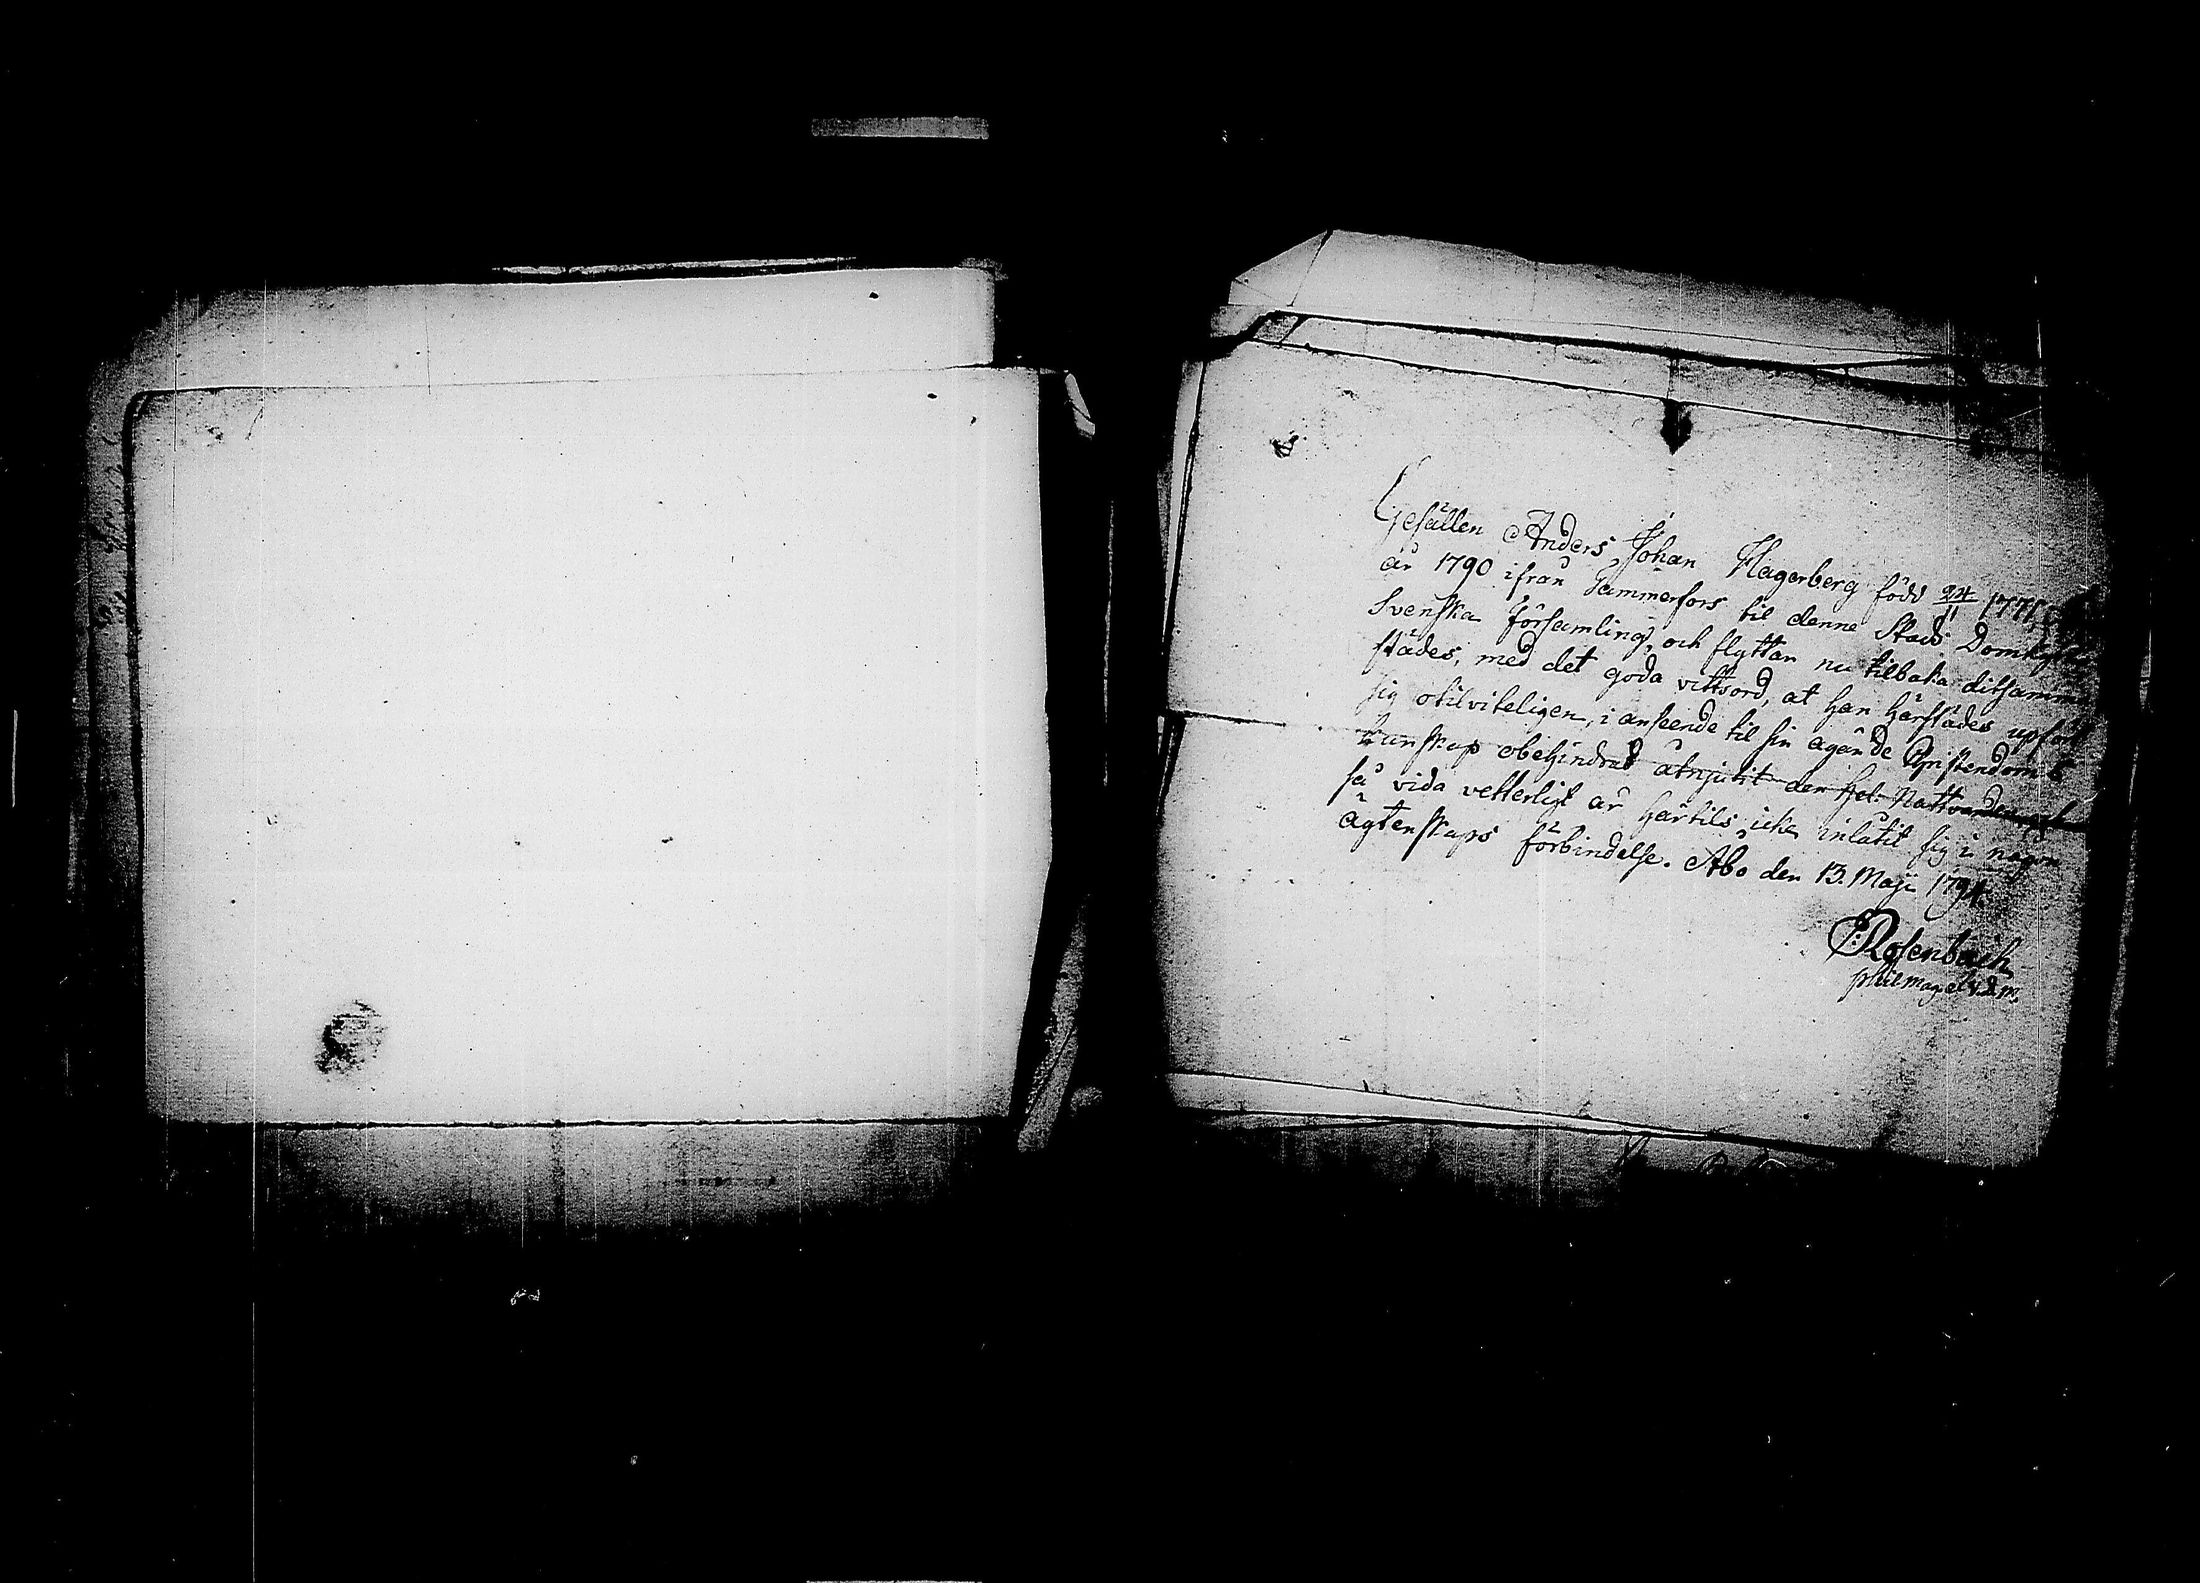 Gesällen Anders Johan Hagerberg född 24/11 1771,
år 1790 ifrån Tammerfors til denne Stads Domkyrko
Svenska Församling, och flyttar nu tilbaka ditsamma
städes, med det goda vittsord, at han härstädes upfört
sig otilviteligen, i anseende til sin ägande Christendoms
kunskap obehindrad åtnjutit den Hel: Nattvarden
så vida vetterligt är härtils icke inlåtit sig i någon
ägtenskaps förbindelse. Åbo den 13. Maji 1794.
E: Rosenback
phil mag. et v. d. m.